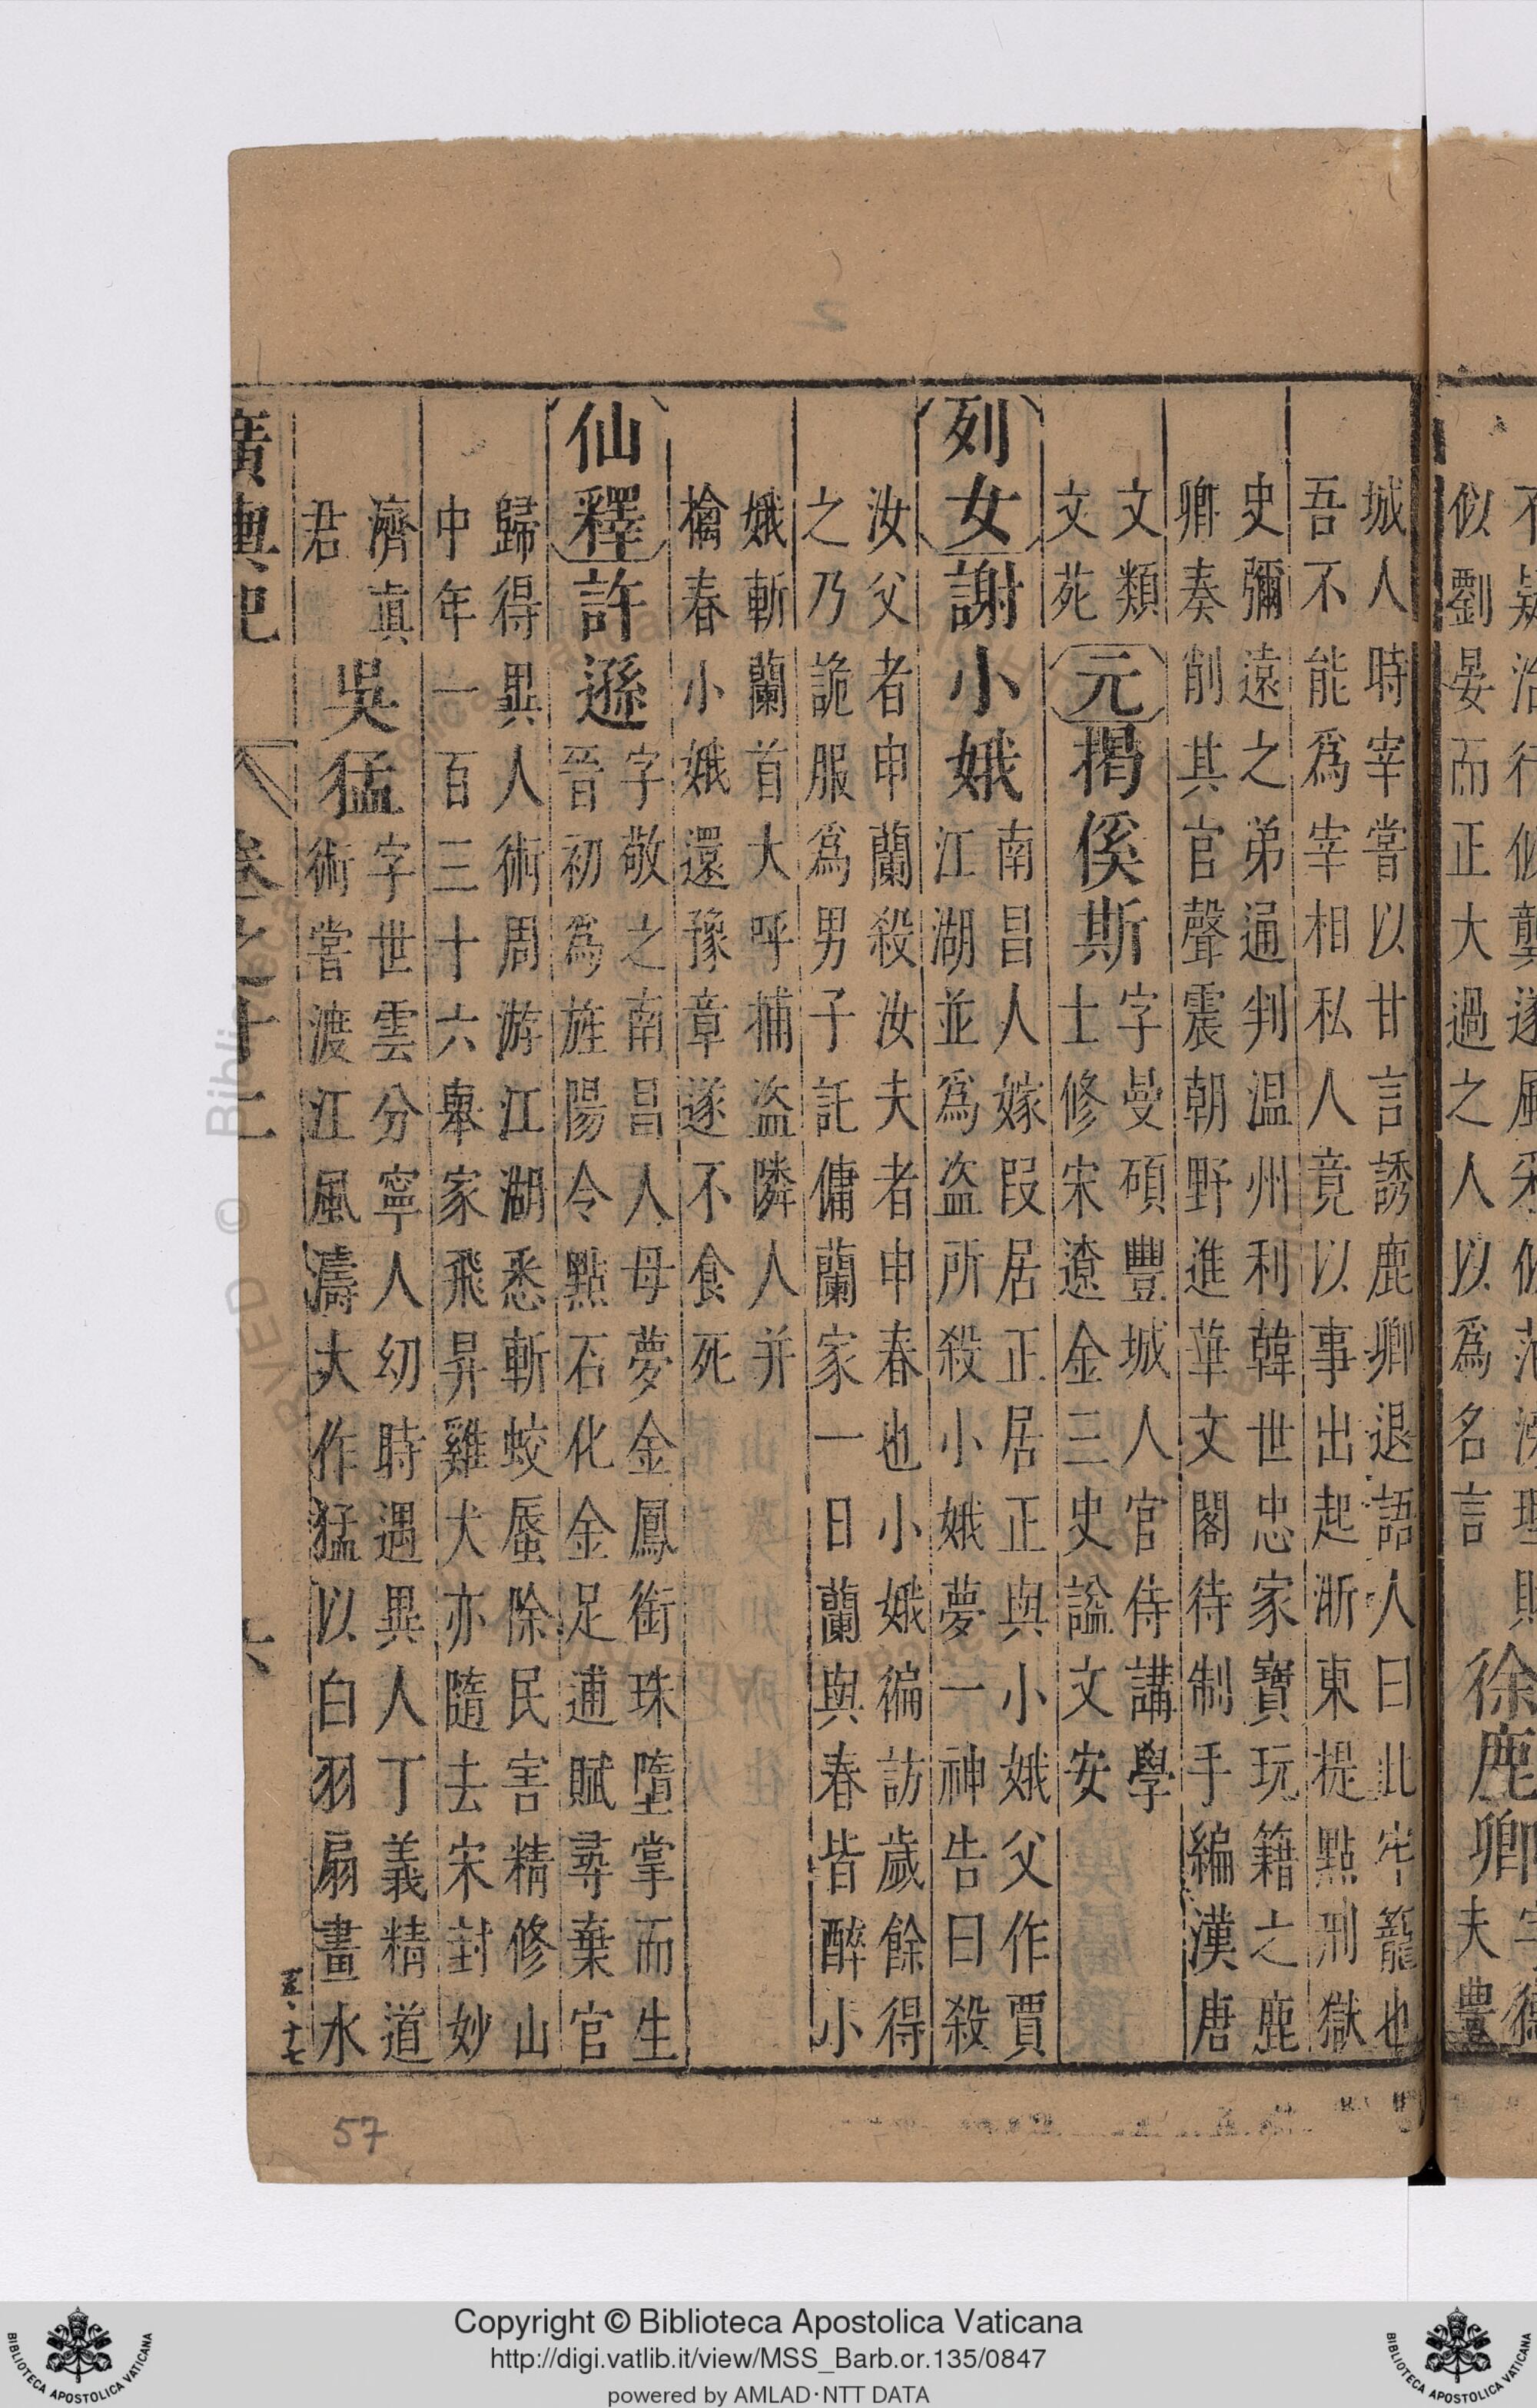 不疑治行似龔遂風采似范滂理財
似劉晏而正大過之人以爲名言
徐鹿卿
字德
夫豐
城人時宰嘗以甘言誘鹿卿退語人曰此牢籠也
吾不能爲宰相私人竟以事出起浙東提點刑獄
史彌遠之弟通判温州利韓世忠家寶玩籍之鹿
卿奏削其官聲震朝野進華文閣待制手編漢唐
文類
文苑
元揭傒斯
字曼碩豐城人官侍講學
士修宋遼金三史謚文安
列女謝小娥
南昌人嫁段居正居正與小娥父作賈
江湖並爲盜所殺小娥夢一神告曰殺
汝父者申蘭殺汝夫者申春也小娥徧訪歲餘得
之乃詭服爲男子託傭蘭家一日蘭與春皆醉小
娥斬蘭首大呼捕盜隣人并
擒春小娥還豫章遂不食死
仙釋許遜
字敬之南昌人母夢金鳳銜珠墮掌而生
晉初爲旌陽令點石化金足逋賦尋棄官
歸得異人術周游江湖悉斬蛟蜃除民害精修山
中年一百三十六舉家飛昇雞犬亦隨去宋封妙
濟真
君
吳猛
字世雲分寧人幼時遇異人丁義精道
術嘗渡江風濤大作猛以白羽扇畫水
廣輿記 卷之十二 六
57
Copyright © Biblioteca Apostolica Vaticana
http://digi.vatlib.it/view/MSS_Barb.or.135/0847
powered by AMLAD·NTT DATA
BIBLIOTECA APOSTOLICA VATICANA
BIBLIOTECA APOSTOLICA VATICANA